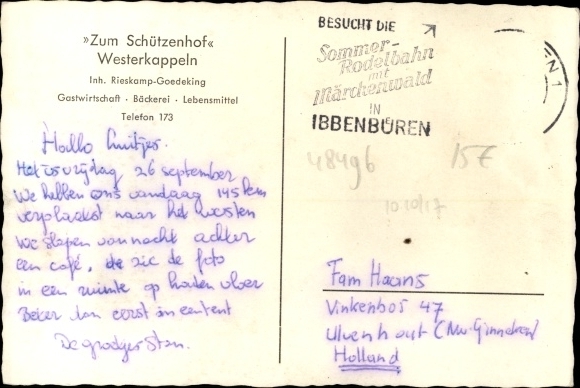 »Zum Schützenhof«
Westerkappeln
Inh. Rieskamp-Goedeking
Gastwirtschaft · Bäckerei · Lebensmittel
Telefon 173
Hallo
Het is vrijdag 26 september
We hebben ons vandaag 145 km
verplaatst naar het westen
We slapen vannacht achter
een café, zie de foto
in een ruimte op houten vloer
Beter dan eerst in een tent
De groetjes Stan.
BESUCHT DIE
Sommer-
Rodelbahn
mit
Märchenwald
IN
IBBENBÜREN
N 1
48496
15€
10/10/17
Fam Haans
Vinkenbos 47
Ulvenhout (Nw-Ginneken)
Holland